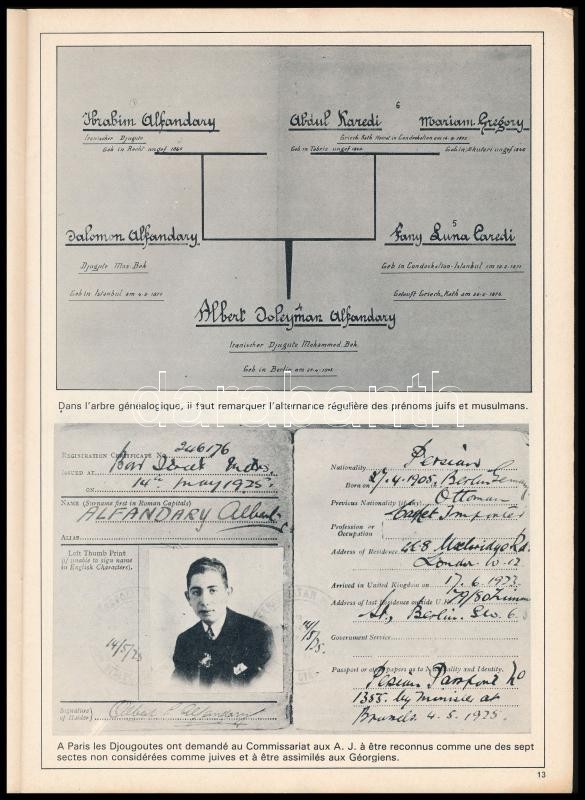 Ibrahim Alfandary
Iranischer Djugute
Geb in Recht ungef 1840
Abdul Karedi
6
Mariam Gregory
Griech. Kath Heirat in Condoskalion am
Geb in Tabris ungef
Geb in Akuleri ungef
Salomon Alfandary
Djugute Mos. Bek
Geb in Istanbul am 4-2-1871
5
Fany Luna Caredi
Geb in Condoskalion-Istanbul am
Getauft Griech. Kath am
4
Albert Soleyman Alfandary
Iranischer Djugute Mohammed. Bek.
Geb. in Berlin am 27-4-1905
Dans l'arbre génealogique, il faut remarquer l'alternance régulière des prénoms juifs et musulmans.
darabanth
REGISTRATION CERTIFICATE No. 246176
ISSUED AT Bow Street
ON 14th May 1925.
NAME (Surname first in Roman Capitals)
ALFANDARY Albert
ALIAS
Left Thumb Print
(if unable to sign name
in English Characters).
14/5/25
Signature
of Holder
Albert S. Alfandary
Nationality Persian
Born on 27.4.1905. Berlin Germany
Previous Nationality (if any) Ottoman
Profession or
Occupation
Carpet Importer
Address of Residence 468
London.
Arrived in United Kingdom on 17.6.1922
Address of last Residence outside U.K.
St., Berlin. S.W. 68
14/5/25.
Government Service
Passport or other papers as to Nationality and Identity.
Persian Passport No
1355. by Minister at
Brussels 4.5.1925.
A Paris les Djougoutes ont demandé au Commissariat aux A. J. à être reconnus comme une des sept
sectes non considérées comme juives et à être assimilés aux Géorgiens.
13